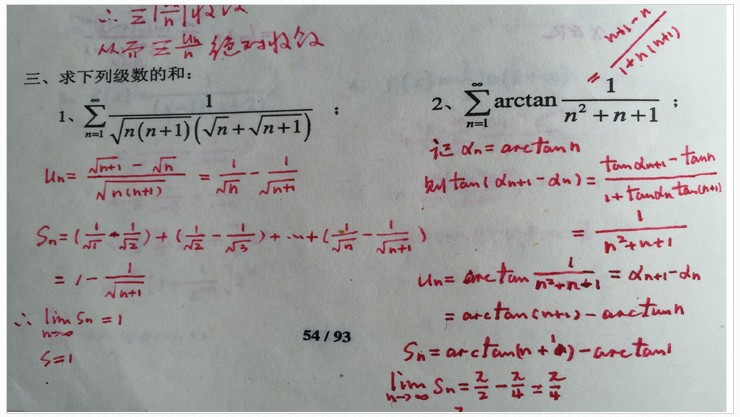 ∴ Σ|uₙ/n| 收敛
从而 Σ uₙ/n 绝对收敛
三、求下列级数的和：
1、∑_{n=1}^{∞} 1/(√(n(n+1))(√n+√(n+1))) ；
uₙ = (√(n+1) - √n)/√(n(n+1)) = 1/√n - 1/√(n+1)
Sₙ = (1/√1 - 1/√2) + (1/√2 - 1/√3) + … + (1/√n - 1/√(n+1))
= 1 - 1/√(n+1)
∴ lim_{n→∞} Sₙ = 1
S=1
2、∑_{n=1}^{∞} arctan 1/(n²+n+1) ；
= (n+1-n)/(1+n(n+1))
记 αₙ = arctan n
则 tan(αₙ₊₁ - αₙ) = (tanαₙ₊₁ - tann)/(1+tanαₙ tan(n+1))
= 1/(n²+n+1)
uₙ = arctan 1/(n²+n+1) = αₙ₊₁ - αₙ
= arctan(n+1) - arctan n
Sₙ = arctan(n+1) - arctan1
lim_{n→∞} Sₙ = π/2 - π/4 = π/4
54 / 93